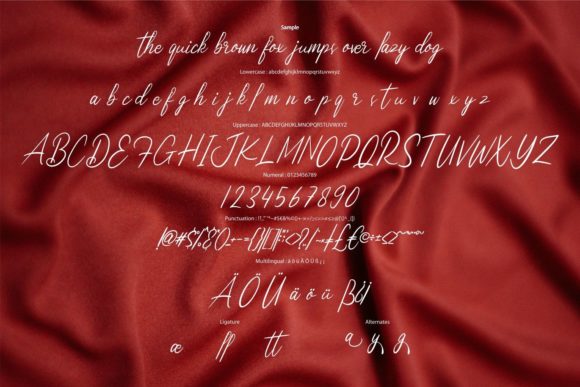 Sample
the quick brown fox jumps over lazy dog
Lowercase : abcdefghijklmnopqrstuvwxyz
a b c d e f g h i j k l m n o p q r s t u v w x y z
Uppercase : ABCDEFGHIJKLMNOPQRSTUVWXYZ
ABCDEFGHIJKLMNOPQRSTUVWXYZ
Numeral : 0123456789
1234567890
Punctuation :
Multilingual : ä ö ü Ä Ö Ü ß ¿ ¡
Ä Ö Ü ä ö ü ß ¿ ¡
Ligature
Alternates
æ ff tt
a y h